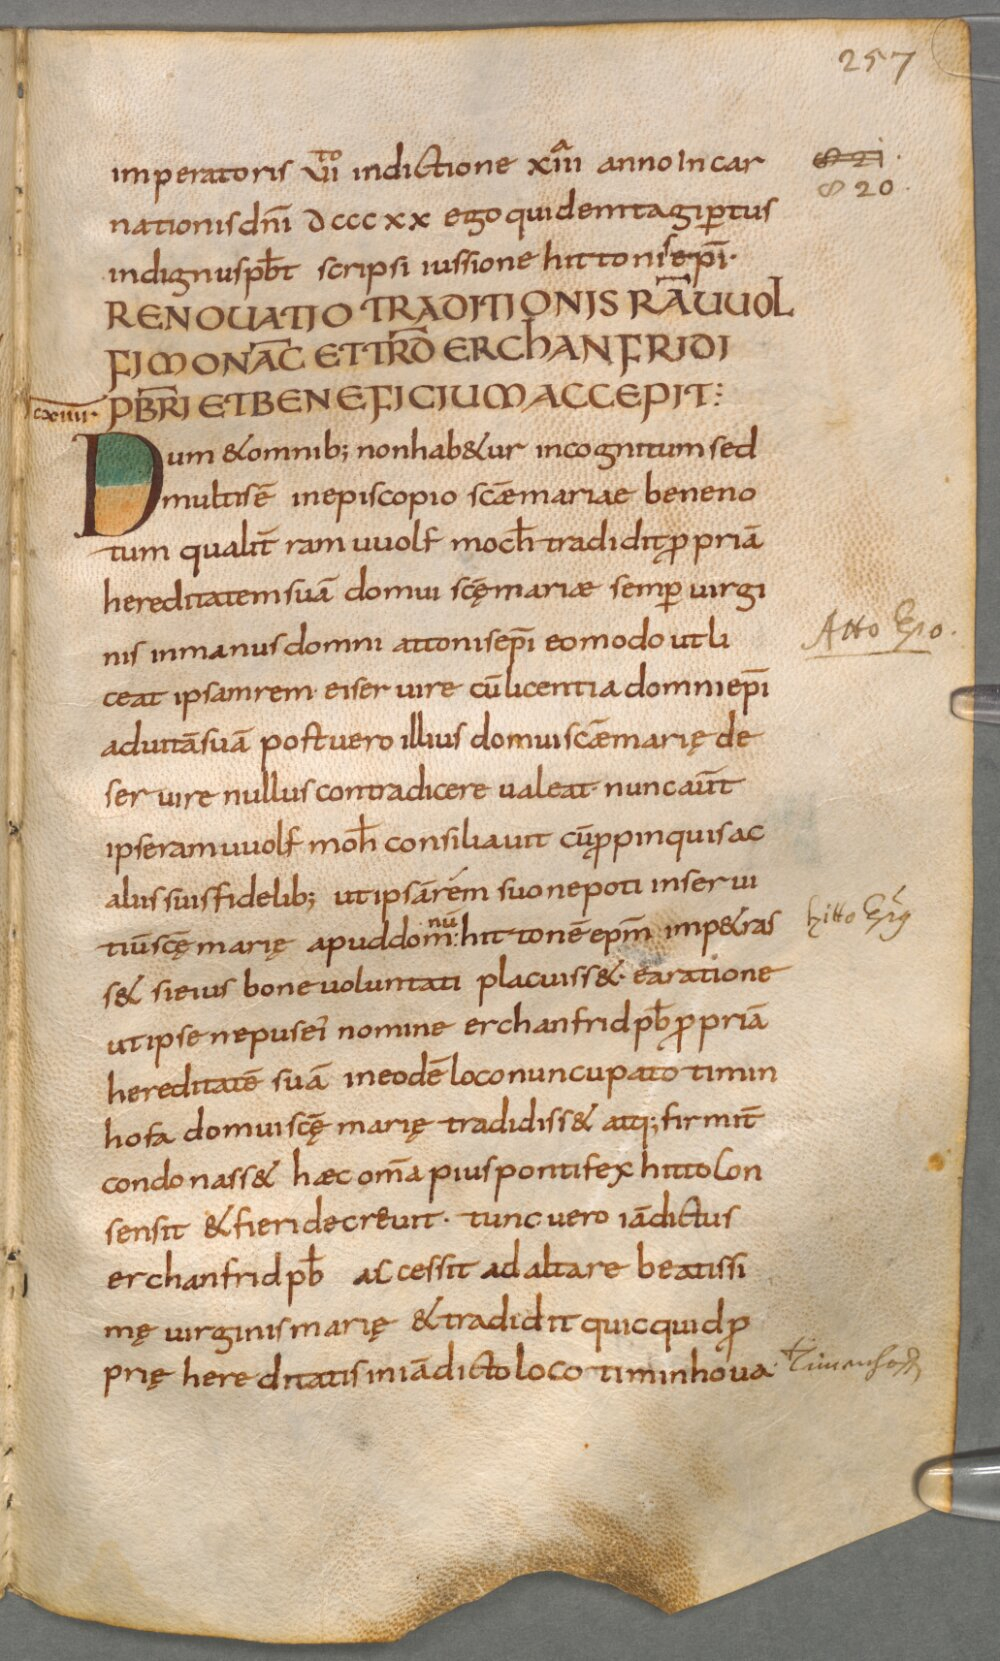 257
imperatoris VII^to indictione xIIII^a anno Incar
821.
820.
nationis dn̄i DCCCXX ego quidem tagiꝑtus
indignus pb̄t scripsi iussione hittonis ep̄i·
RENOUATIO TRADITIONIS RĀUUOL
FI MONAC̄ ET TRD̄ ERCHANFRIDI
PB̄RI ET BENEFICIUM ACCEPIT:
cxiiii·
Dum & omnib; non hab&ur incognitum sed
multis ē in episcopio scāe mariae bene no
tum qualit̄ ramuuolf moch̄ tradidit ꝓpriā
hereditatem suā domui scę̄ mariæ semꝑ uirgi
nis in manus domni attonis ep̄i eo modo ut li
Atto Epo.
ceat ipsam rem ei seruire cū licentia domni ep̄i
ad uitā suā post uero illius domui scāe marię de
seruire nullus contradicere ualeat· nunc aut̄
ipse ramuuolf moh̄ consiliauit cū ꝓpinquis ac
aliis suis fidelib; ut ipsā rem suo nepoti in serui
tiū scę̄ marię apud dom:nū hittonē ep̄m imp&ras
hitto Epg
s& si eius bone uoluntati placuiss&· ea ratione
ut ipse nepus ei nomine erchanfrid pb̄ ꝓpriā
hereditatē suā in eodē loco nuncupato timin
hofa domui scę̄ marię tradidiss& atq; firmit̄
condonass& hæc om̄a pius pontifex hitto con
sensit & fieri decreuit· tunc uero iādictus
erchanfrid pb̄ accessit ad altare beatissi
mę uirginis marię & tradidit quicquid ꝓ
prię hereditatis in iādicto loco timinhoua·